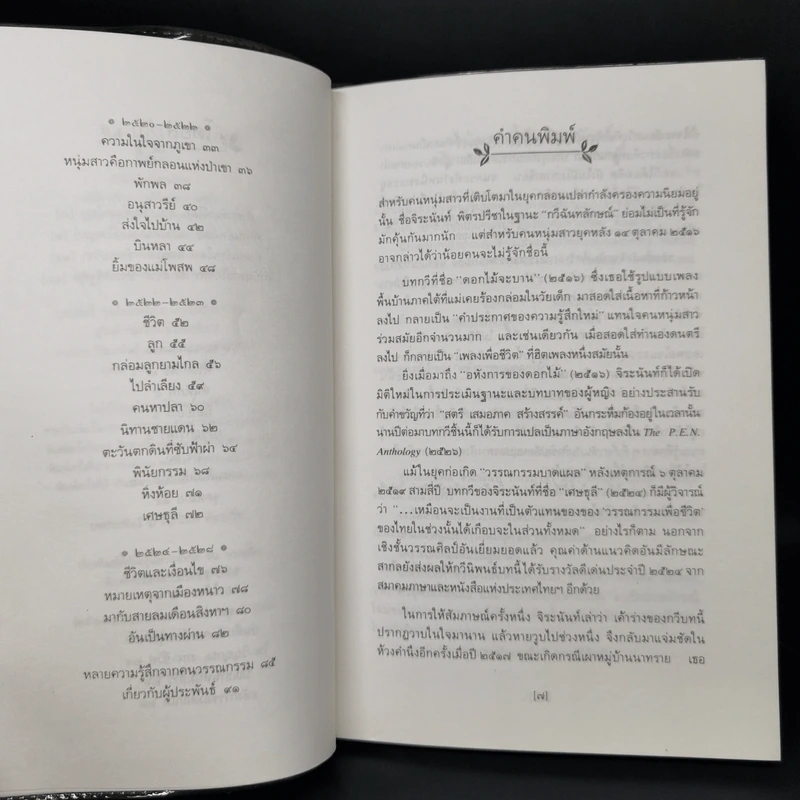 ๏ ๒๕๒๐-๒๕๒๒ ๏
ความในใจจากภูเขา ๓๓
หนุ่มสาวคือกาพย์กลอนแห่งป่าเขา ๓๖
พักพล ๓๘
อนุสาวรีย์ ๔๐
ส่งใจไปบ้าน ๔๒
บินหลา ๔๔
ยิ้มของแม่โพสพ ๔๘
๏ ๒๕๒๒-๒๕๒๓ ๏
ชีวิต ๕๒
ลูก ๕๕
กล่อมลูกยามไกล ๕๖
ไปลำเลียง ๕๙
คนหาปลา ๖๐
นิทานชายแดน ๖๒
ตะวันตกดินที่ซับฟ้าผ่า ๖๔
พินัยกรรม ๖๘
หิ่งห้อย ๗๑
เศษธุลี ๗๒
๏ ๒๕๒๔-๒๕๒๘ ๏
ชีวิตและเงื่อนไข ๗๖
หมายเหตุจากเมืองหนาว ๗๘
มากับสายลมเดือนสิงหาฯ ๘๐
อันเป็นทางผ่าน ๘๒
หลายความรู้สึกจากคนวรรณกรรม ๘๕
เกี่ยวกับผู้ประพันธ์ ๙๑
คำคนพิมพ์
สำหรับคนหนุ่มสาวที่เติบโตมาในยุคกลอนเปล่ากำลังครองความนิยมอยู่
นั้น ชื่อจิระนันท์ พิตรปรีชาในฐานะ "กวีฉันทลักษณ์" ย่อมไม่เป็นที่รู้จัก
มักคุ้นกันมากนัก แต่สำหรับคนหนุ่มสาวยุคหลัง ๑๔ ตุลาคม ๒๕๑๖
อาจกล่าวได้ว่าน้อยคนจะไม่รู้จักชื่อนี้
บทกวีที่ชื่อ "ดอกไม้จะบาน" (๒๕๑๖) ซึ่งเธอใช้รูปแบบเพลง
พื้นบ้านภาคใต้ที่แม่เคยร้องกล่อมในวัยเด็ก มาสอดใส่เนื้อหาที่ก้าวหน้า
ลงไป กลายเป็น "คำประกาศของความรู้สึกใหม่" แทนใจคนหนุ่มสาว
ร่วมสมัยอีกจำนวนมาก และเช่นเดียวกัน เมื่อสอดใส่ทำนองดนตรี
ลงไป ก็กลายเป็น "เพลงเพื่อชีวิต" ที่ฮิตเพลงหนึ่งสมัยนั้น
ยิ่งเมื่อมาถึง "อหังการของดอกไม้" (๒๕๑๖) จิระนันท์ก็ได้เปิด
มิติใหม่ในการประเมินฐานะและบทบาทของผู้หญิง อย่างประสานรับ
กับคำขวัญที่ว่า "สตรี เสมอภาค สร้างสรรค์" อันกระหึ่มก้องอยู่ในเวลานั้น
นานปีต่อมาบทกวีชิ้นนี้ก็ได้รับการแปลเป็นภาษาอังกฤษลงใน The P.E.N.
Anthology (๒๕๒๖)
แม้ในยุคก่อเกิด "วรรณกรรมบาดแผล" หลังเหตุการณ์ ๖ ตุลาคม
๒๕๑๙ สามสี่ปี บทกวีของจิระนันท์ที่ชื่อ "เศษธุลี" (๒๕๒๔) ก็มีผู้วิจารณ์
ว่า "...เหมือนจะเป็นงานที่เป็นตัวแทนของของ 'วรรณกรรมเพื่อชีวิต'
ของไทยในช่วงนั้นได้เกือบจะในส่วนทั้งหมด" อย่างไรก็ตาม นอกจาก
เชิงชั้นวรรณศิลป์อันเยี่ยมยอดแล้ว คุณค่าด้านแนวคิดอันมีลักษณะ
สากลยังส่งผลให้กวีนิพนธ์บทนี้ได้รับรางวัลดีเด่นประจำปี ๒๕๒๔ จาก
สมาคมภาษาและหนังสือแห่งประเทศไทยฯ อีกด้วย
ในการให้สัมภาษณ์ครั้งหนึ่ง จิระนันท์เล่าว่า เค้าร่างของกวีบทนี้
ปรากฏวาบในใจมานาน แล้วหายวูบไปช่วงหนึ่ง จึงกลับมาแจ่มชัดใน
ห้วงคำนึงอีกครั้งเมื่อปี ๒๕๑๗ ขณะเกิดกรณีเผาหมู่บ้านนาทราย เธอ
[๗]